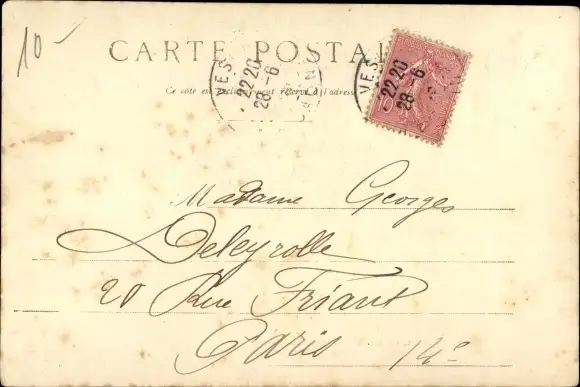 10-
CARTE POSTALE
Ce côté est exclusivement réservé à l'adresse
VES
22 20
28 -6
VES
22 20
28 -6
Madame Georges
Deleyrolle
20 Rue Friant
Paris 14e